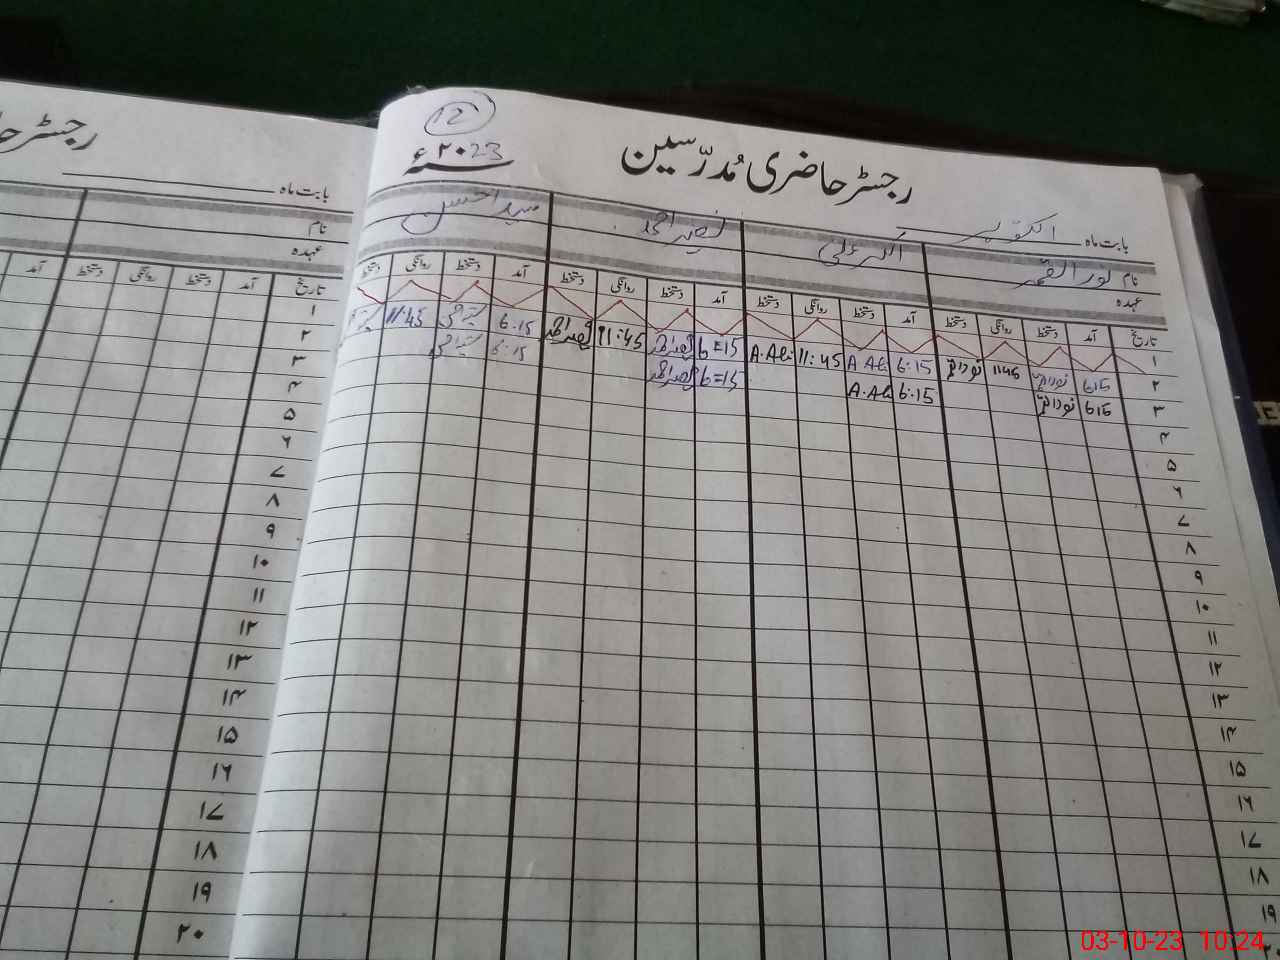 12
رجسٹر حاضری مُدرّسین ۲۰23ء
بابت ماہ اکتوبر
نام نور القمر اکبر علی نصیر احمد سید احسن
عہدہ
تاریخ آمد دستخط روانگی دستخط آمد دستخط روانگی دستخط آمد دستخط روانگی دستخط آمد دستخط روانگی دستخط
۱
۲ 615 نورالقمر 1145 نورالقمر 6:15 A.Ali 11:45 A.Ali 6=15 نصیر احمد 11:45 نصیر احمد 6:15 11:45
۳ 615 نورالقمر 6:15 A.Ali 6=15 نصیر احمد 6:15
۴
۵
۶
۷
۸
۹
۱۰
۱۱
۱۲
۱۳
۱۴
۱۵
۱۶
۱۷
۱۸
۱۹
رجسٹر حا
بابت ماہ
نام
عہدہ
تاریخ آمد دستخط روانگی دستخط آمد
۱
۲
۳
۴
۵
۶
۷
۸
۹
۱۰
۱۱
۱۲
۱۳
۱۴
۱۵
۱۶
۱۷
۱۸
۱۹
۲۰
03-10-23 10:24